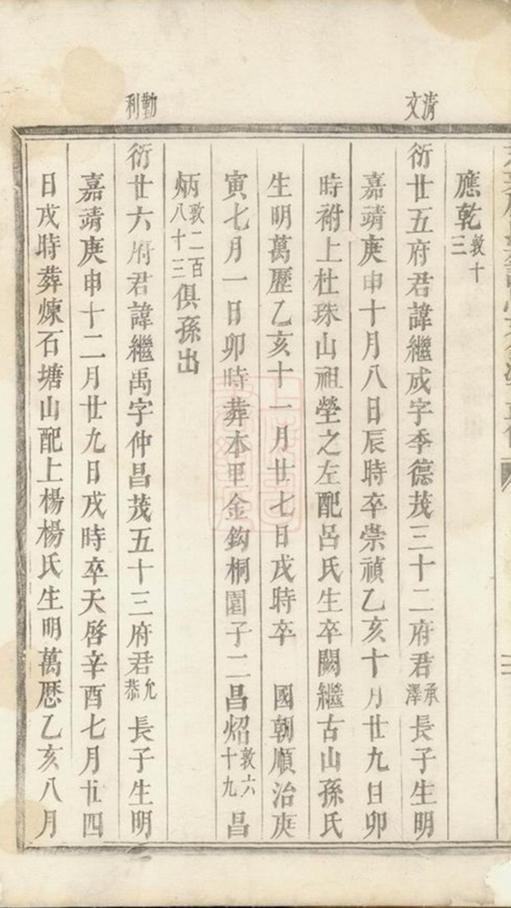 清文
勤利
應乾敦十三
衍廿五府君諱繼成字季德茂三十二府君承澤長子生明
嘉靖庚申十月八日辰時卒崇禎乙亥十月廿九日卯
時祔上杜珠山祖塋之左配呂氏生卒闕繼古山孫氏
生明萬歷乙亥十一月廿七日戌時卒　國朝順治庚
寅七月一日卯時葬本里金鈎桐園子二昌炤敦六十九昌
炳敦二百八十三俱孫出
衍廿六府君諱繼禹字仲昌茂五十三府君允恭長子生明
嘉靖庚申十二月廿九日戌時卒天啓辛酉七月廿四
日戌時葬煉石塘山配上楊楊氏生明萬歷乙亥八月